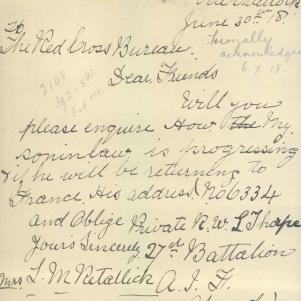 June 30th 18.
To
The Red Cross Bureau.
formally
acknowledged
6.7.18.
Dear Friends
Will you
please enquire How the My
soninlaw is progressing
& if he will be returning to
France. His address No 6334
and Oblige Private R. W. L Thorpe
Yours Sincerely 27st Battalion
Mrs L. M Retallick A. I. F.